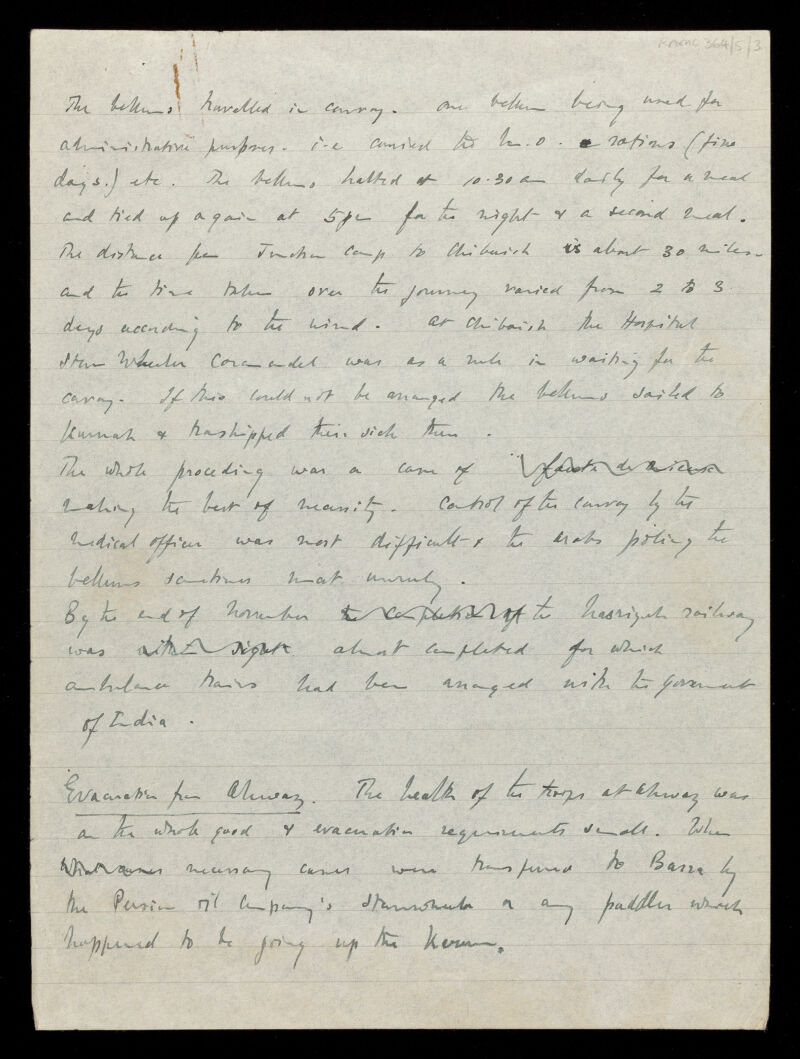 RAMC 364/5/3
The bellums travelled in convoy. One bellum being used for
administrative purposes. i.e carried the M.O. rations (five
days.) etc. The bellums halted at 10.30 am daily for a meal
and tied up again at 5 pm for the night & a second meal.
The distance from Junction camp to Chibaish is about 30 miles
and the time taken over the journey varied from 2 to 3
days according to the wind. At Chibaish the Hospital
Stern Wheeler Coromandel was as a rule in waiting for the
convoy. If this could not be arranged the bellums sailed to
Kurnah & transhipped their sick there.
The whole proceding was a case of
making the best of necessity. Control of the convoy by the
medical officer was most difficult & the arabs poling the
bellums sometimes most unruly.
By the end of November the completion of the Nasriyeh railway
was within sight almost completed for which
ambulance trains had been arranged with the Government
of India.
Evacuation from Ahwaz. The health of the troops at Ahwaz was
on the whole good & evacuation requirements small. When
necessary cases were transferred to Basra by
the Persian Oil Company's sternwheeler or any paddler which
happened to be going up the Karun.